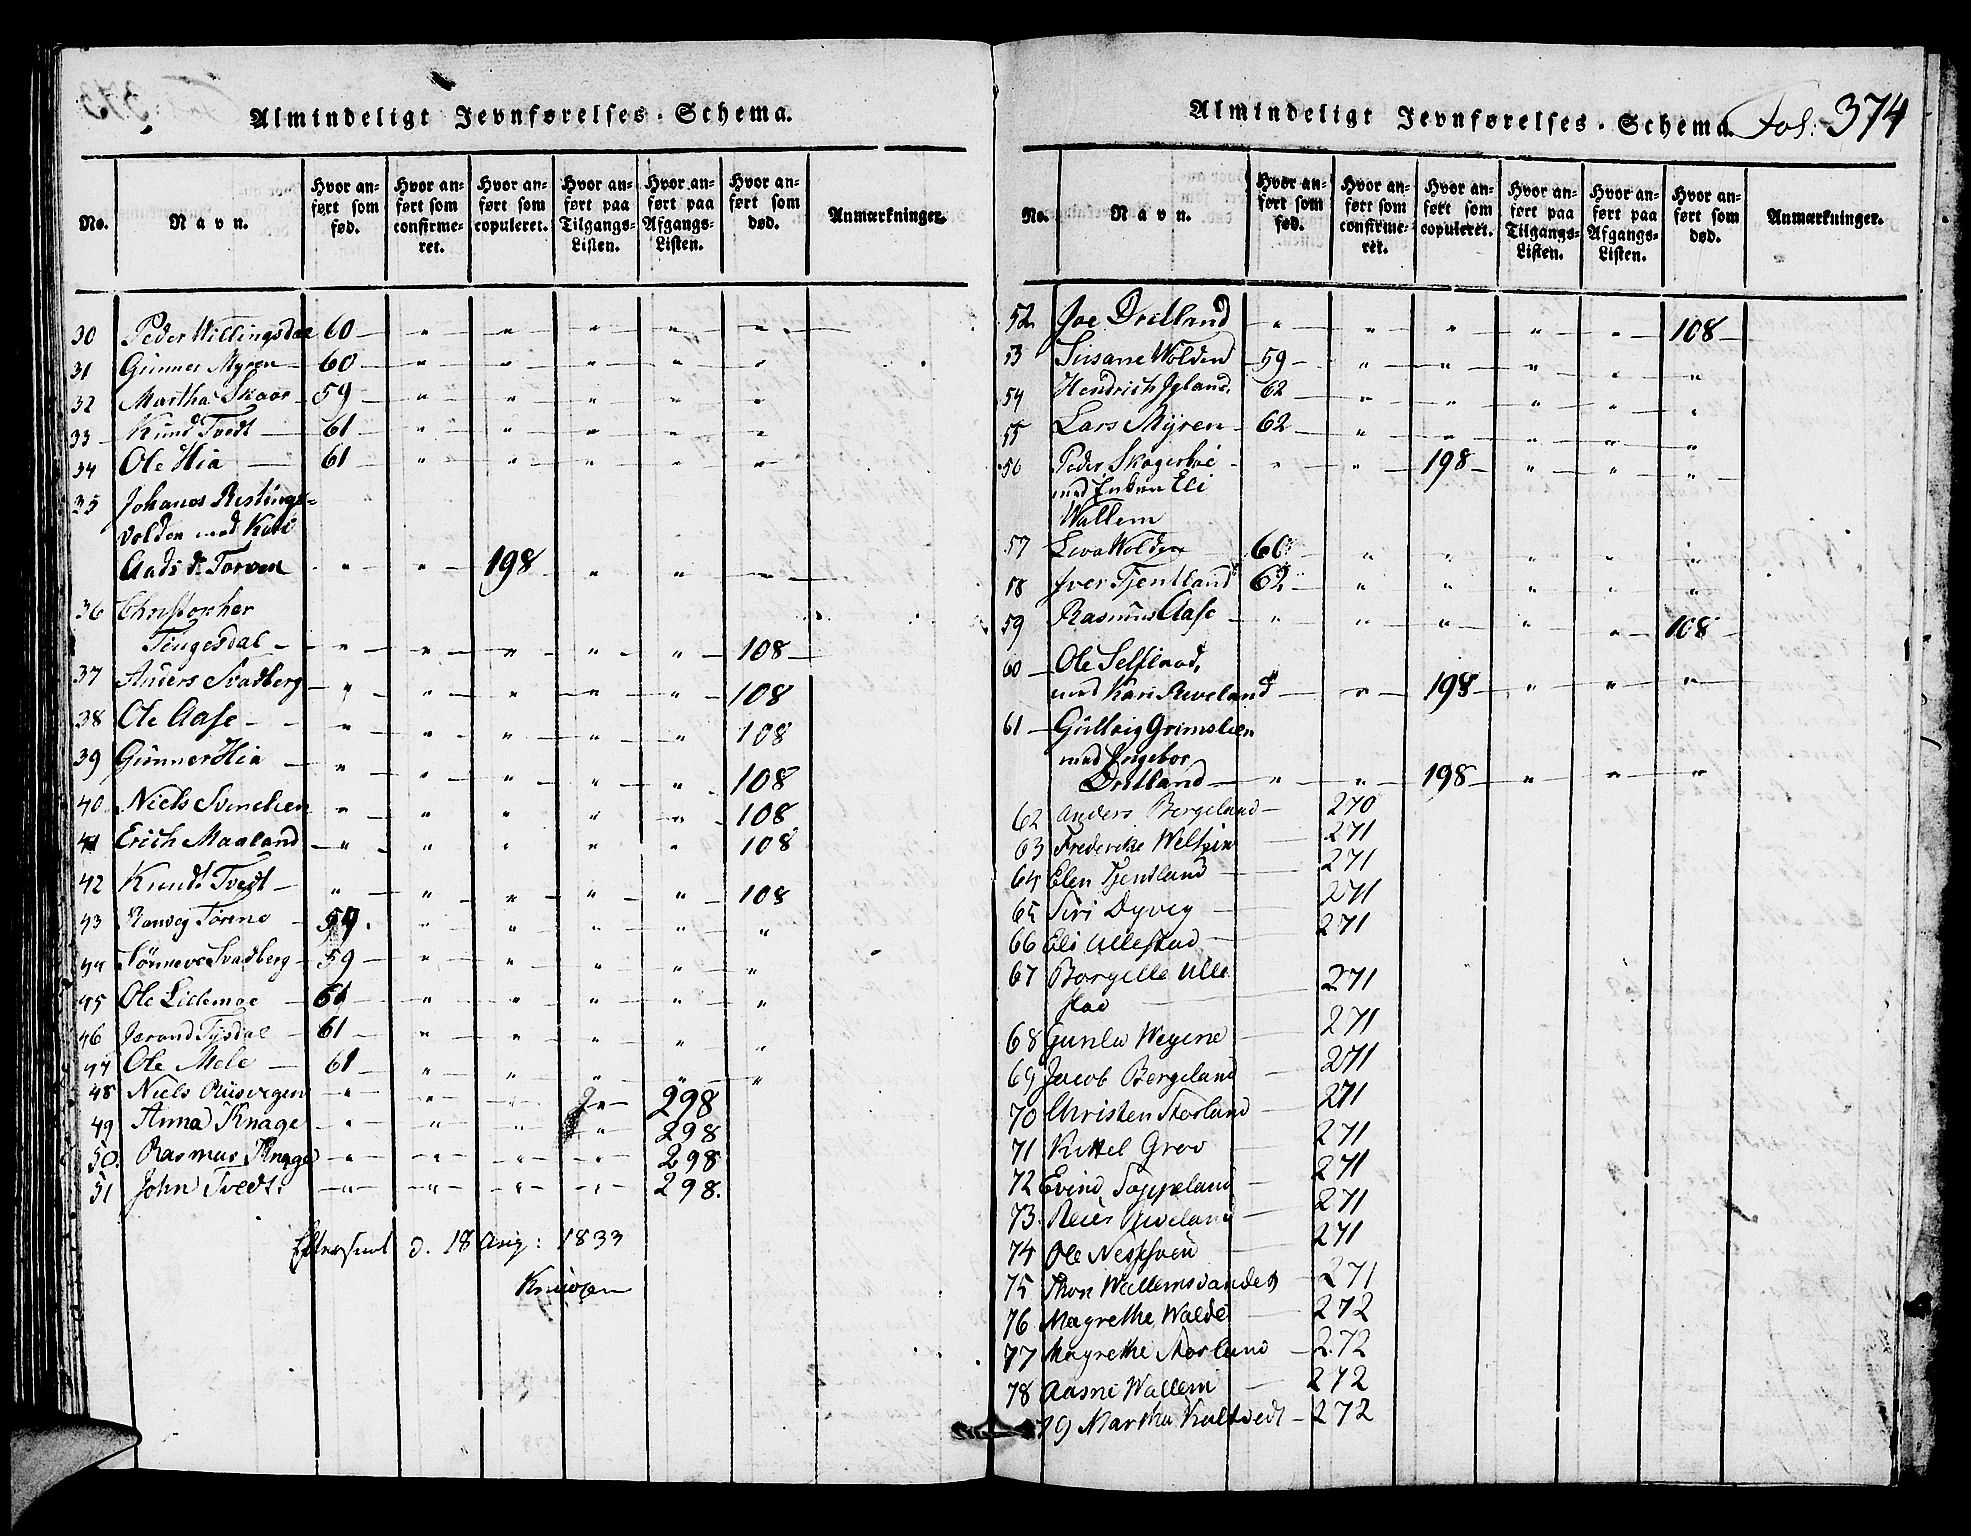 Almindeligt Jevnførelses-Schema.
No.
Navn.
Hvor an-
ført som
fød.
Hvor an-
ført som
confirme-
ret.
Hvor an-
ført som
copuleret.
Hvor an-
ført paa
Tilgangs-
Listen.
Hvor an-
ført paa
Afgangs-
Listen.
Hvor an-
ført som
død.
Anmærkninger.
30 Peder Willingsdal 60 " " " " "
31 Gunner Myren 60 " " " " "
32 Martha Skaar 59 " " " " "
33 Knud Tvedt 61 " " " " "
34 Ole Hia 61 " " " " "
35 Johanes Restings=
volden med Kari
Aads d. Torven " " 198 " " "
36 Christopher
Tengesdal " " " " " 108
37 Anders Svadberg " " " " " 108
38 Ole Aase " " " " " 108
39 Gunner Hia " " " " " 108
40 Niels " " " " " 108
41 Erich Maaland " " " " " 108
42 Knud Tvedt " " " " " 108
43 Ranveg 59. " " " " "
44 Sønneve Svadberg 59 " " " " "
45 Ole Lidemoe 61 " " " " "
46 Jarand Tysdal 61 " " " " "
47 Ole Mele 61 " " " " "
48 Niels " " " 298
49 Anna Knage " " " " 298
50. Rasmus Knage " " " " 298
51 John Tvedt " " " " 298.
Efterseet d. 18 Aug: 1833
Almindeligt Jevnførelses-Schema. Fol: 374
No.
Navn.
Hvor an-
ført som
fød.
Hvor an-
ført som
confirme-
ret.
Hvor an-
ført som
copuleret.
Hvor an-
ført paa
Tilgangs-
Listen.
Hvor an-
ført paa
Afgangs-
Listen.
Hvor an-
ført som
død.
Anmærkninger.
52 Joe Dretland " " " " " 108
53 Susane Wolden 59 " " " " "
54 Hendrich Igland. 62 " " " " "
55 Lars Myren 62 " " " " "
56 Peder " " 198 " " "
med Enken Eli
Wallem
57 Lева Wolden 60 " " " " "
58 Iver Tjentland 62 " " " " "
59 Rasmus Aase " " " " " 108
60 Ole Selstaad,
med Kari Reveland " " 198 " " "
61 Gullvig Grimslien
med Ingebor
Dretland " " 198 " " "
62 Anders Bergeland 270
63 Frederike 271
64 Elen Tjentland 271
65 Siri Dyveg 271
66 Eli Ullestad 271
67 Borgille Ulle
stad 271
68 Gunla Wegene 271
69 Jacob Bergeland 271
70 Christen Storland 271
71 Kittel Grov 271
72 Evind 271
73. Reier Reveland 271
74 Ole 271
75 Thor 271
76 Magrethe Walde 272
77 Magrethe Storland 272
78 Aasne Wallem 272
79 Martha Kaltvedt 272